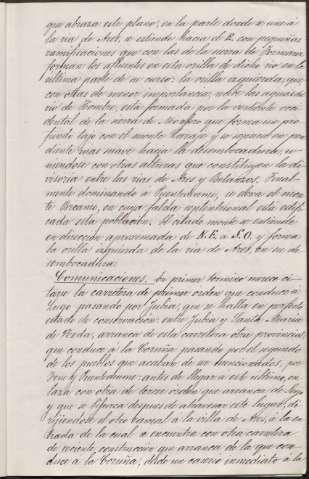 que abraza este plano, en la parte donde se une á
la ria de Ares, se estiende hacia el E. con pequeñas
ramificaciones que con las de la sierra la
forman los afluentes en esta orilla de dicho rio en la
ultima parte de su curso: la orilla izquierda, que
con otras de menor importancia, sobre las aguas del
rio de Eume, está formada por la vertiente occi-
dental de la sierra de que forma un pro-
fundo tajo con el monte y se separa en pen-
diente mas suave hacia la desembocadura, u-
niendose con otras alturas que constituyen la di-
visoria entre las rias de Ares y Betanzos. Final-
mente dominando á Puentedeume, se eleva el mon-
te Breamo, en cuya falda septentrional está edifi-
cada esta poblacion. El citado monte se estiende
en direccion aproximada de N.E. á S.O. y forma
la orilla izquierda de la ria de Ares, en su de-
sembocadura.
Comunicaciones. En primer termino merece ci-
tarse la carretera de primer orden que conduce á
Lugo pasando por Jubia, que se halla en perfecto
estado de conservacion: entre Jubia y Santa Maria
de Neda, arranca de esta carretera otra provincial,
que conduce á la Coruña pasando por el segundo
de los pueblos que acaban de mencionarse, por
Fene y Puentedeume: antes de llegar á este ultimo, en-
laza con otra de tercer orden que arranca del
y que se bifurca despues de atravesar este lugar, di-
rigiendose el otro ramal á la villa de Ares, á la en-
trada de la cual se encuentra con otra carretera
de reciente construccion que arranca de la que con-
duce á la Coruña, desde un caserio inmediato á la